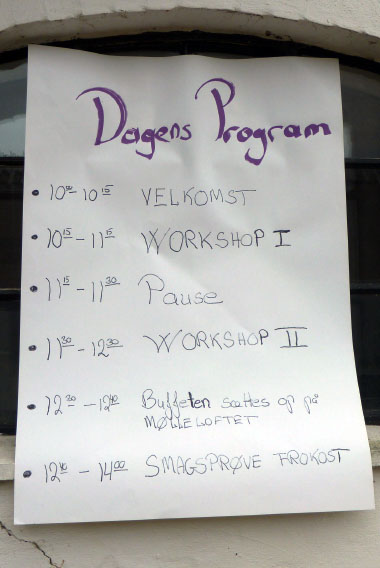 Dagens Program
• 10⁰⁰-10¹⁵ VELKOMST
• 10¹⁵-11¹⁵ WORKSHOP I
• 11¹⁵-11³⁰ Pause
• 11³⁰-12³⁰ WORKSHOP II
• 12³⁰-12⁴⁰ Buffeten sættes op på
MØLLELOFTET
• 12⁴⁰-14⁰⁰ SMAGSPRØVE FROKOST